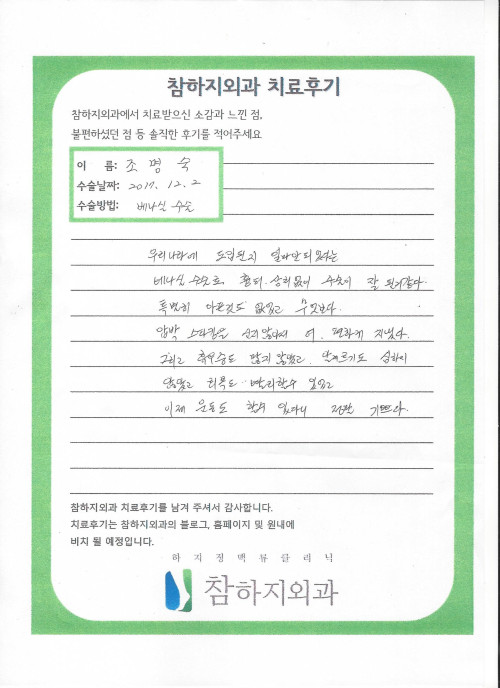 참하지외과 치료후기
참하지외과에서 치료받으신 소감과 느낀 점,
불편하셨던 점 등 솔직한 후기를 적어주세요
이 름: 조명숙
수술날짜: 2017. 12. 2
수술방법: 베나실 수술
우리나라에 도입된지 얼마안되었다는
베나실 수술로, 흉터.상처없이 수술이 잘 된거같다.
특별히 아픈것도 없었고 무엇보다.
압박 스타킹을 신지 않아서 더. 편하게 지냈다.
그리고 후유증도 많지 않았고. 심하지
않았고 회복도 빨리할수 있었고
이제 운동도 할수 있다니 정말 기쁘다.
참하지외과 치료후기를 남겨 주셔서 감사합니다.
치료후기는 참하지외과의 블로그, 홈페이지 및 원내에
비치 될 예정입니다.
하지정맥류클리닉
참하지외과